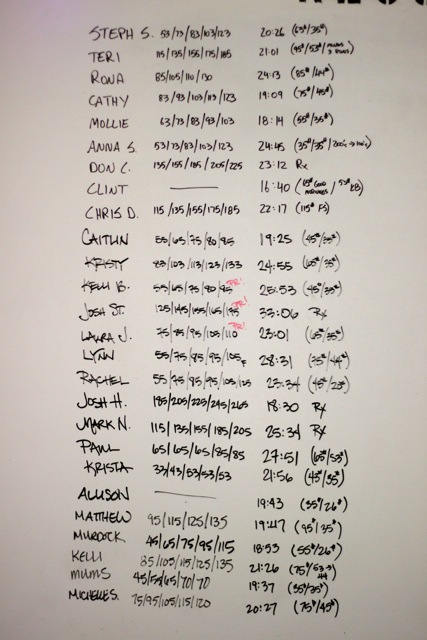 STEPH S. 53/73/83/103/123 20:26 (63#/35#)
TERI 115/135/155/175/185 21:01 (95#/53#/
RONA 85/105/110/130 24:13 (85#/44#)
CATHY 83/93/103/113/123 19:09 (75#/45#)
MOLLIE 63/73/83/93/103 18:14 (55#/35#)
ANNA S. 53/73/83/103/123 24:45 (35#/35#/
DON C. 135/155/185/205/225 23:12 Rx
CLINT — 16:40
CHRIS D. 115/135/155/175/185 22:17 (115# FS)
CAITLIN 55/65/75/80/85 19:25 (45#/35#)
KRISTY 83/103/113/123/133 24:55 (65#/35#)
KELLI B. 55/65/75/80/95 PR! 25:53 (45#/35#)
JOSH ST. 125/145/155/165/195 PR! 33:06 Rx
LAURA J. 75/85/95/105/110 PR! 23:01 (65#/35#)
LYNN 55/75/85/95/105F 28:31 (75#/44#)
RACHEL 55/75/85/95/105/125 23:34 (45#/23#)
JOSH H. 185/205/225/245/265 18:30 Rx
MARK N. 115/135/155/185/205 25:34 Rx
PAUL 65/65/65/85/85 27:51 (65#/53#)
KRISTA 33/43/53/53/53 21:56 (45#/35#)
ALLISON — 19:43 (35#/26#)
MATTHEW 95/115/125/135 19:47 (95#/35#)
MURDOCK 45/65/75/95/115 18:53 (55#/26#)
KELLI 85/105/115/125/135 21:26 (75#/53→44
MIMS 45/55/65/70/70 19:37 (35#/35#)
MICHELLE S. 75/95/105/115/120 20:27 (75#/45#)